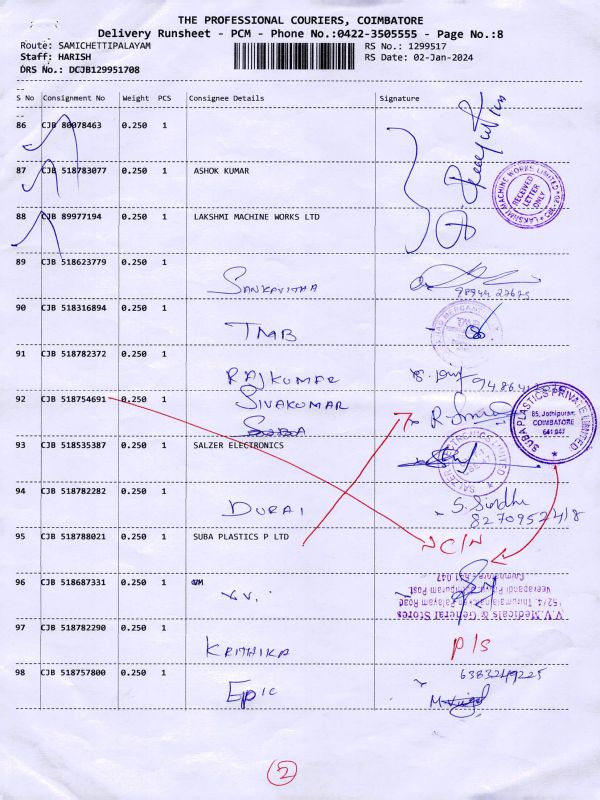 THE PROFESSIONAL COURIERS, COIMBATORE
Delivery Runsheet - PCM - Phone No.:0422-3505555 - Page No.:8
Route: SAMICHETTIPALAYAM RS No.: 1299517
Staff: HARISH RS Date: 02-Jan-2024
DRS No.: DCJB129951708
S No Consignment No Weight PCS Consignee Details Signature
86 CJB 80078463 0.250 1
87 CJB 518783077 0.250 1 ASHOK KUMAR
LAKSHMI MACHINE WORKS LIMITED
RECEIVED
LETTER
ONLY
88 CJB 89977194 0.250 1 LAKSHMI MACHINE WORKS LTD
89 CJB 518623779 0.250 1
SANKAVITHA
90 CJB 518316894 0.250 1
TMB
91 CJB 518782372 0.250 1
RAJKUMAR
92 CJB 518754691 0.250 1 SIVAKUMAR
SUBA
SUBA PLASTICS PRIVATE LIMITED
COIMBATORE
641 047
93 CJB 518535387 0.250 1 SALZER ELECTRONICS
SALZER ELECTRONICS LIMITED
94 CJB 518782282 0.250 1
DURAI S. Sindhu
8270952418
95 CJB 518788021 0.250 1 SUBA PLASTICS P LTD
N C/N
96 CJB 518687331 0.250 1
V.V.
V.V.Medicals & General Stores
Coimbatore - 641 047
97 CJB 518782290 0.250 1
KRITHIKA P/S
98 CJB 518757800 0.250 1 6383249225
EPIC
2